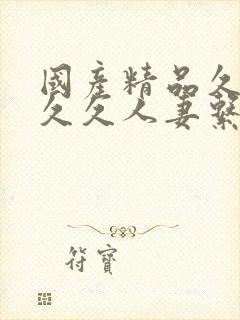 國產精品久
久久人妻繫
符寶